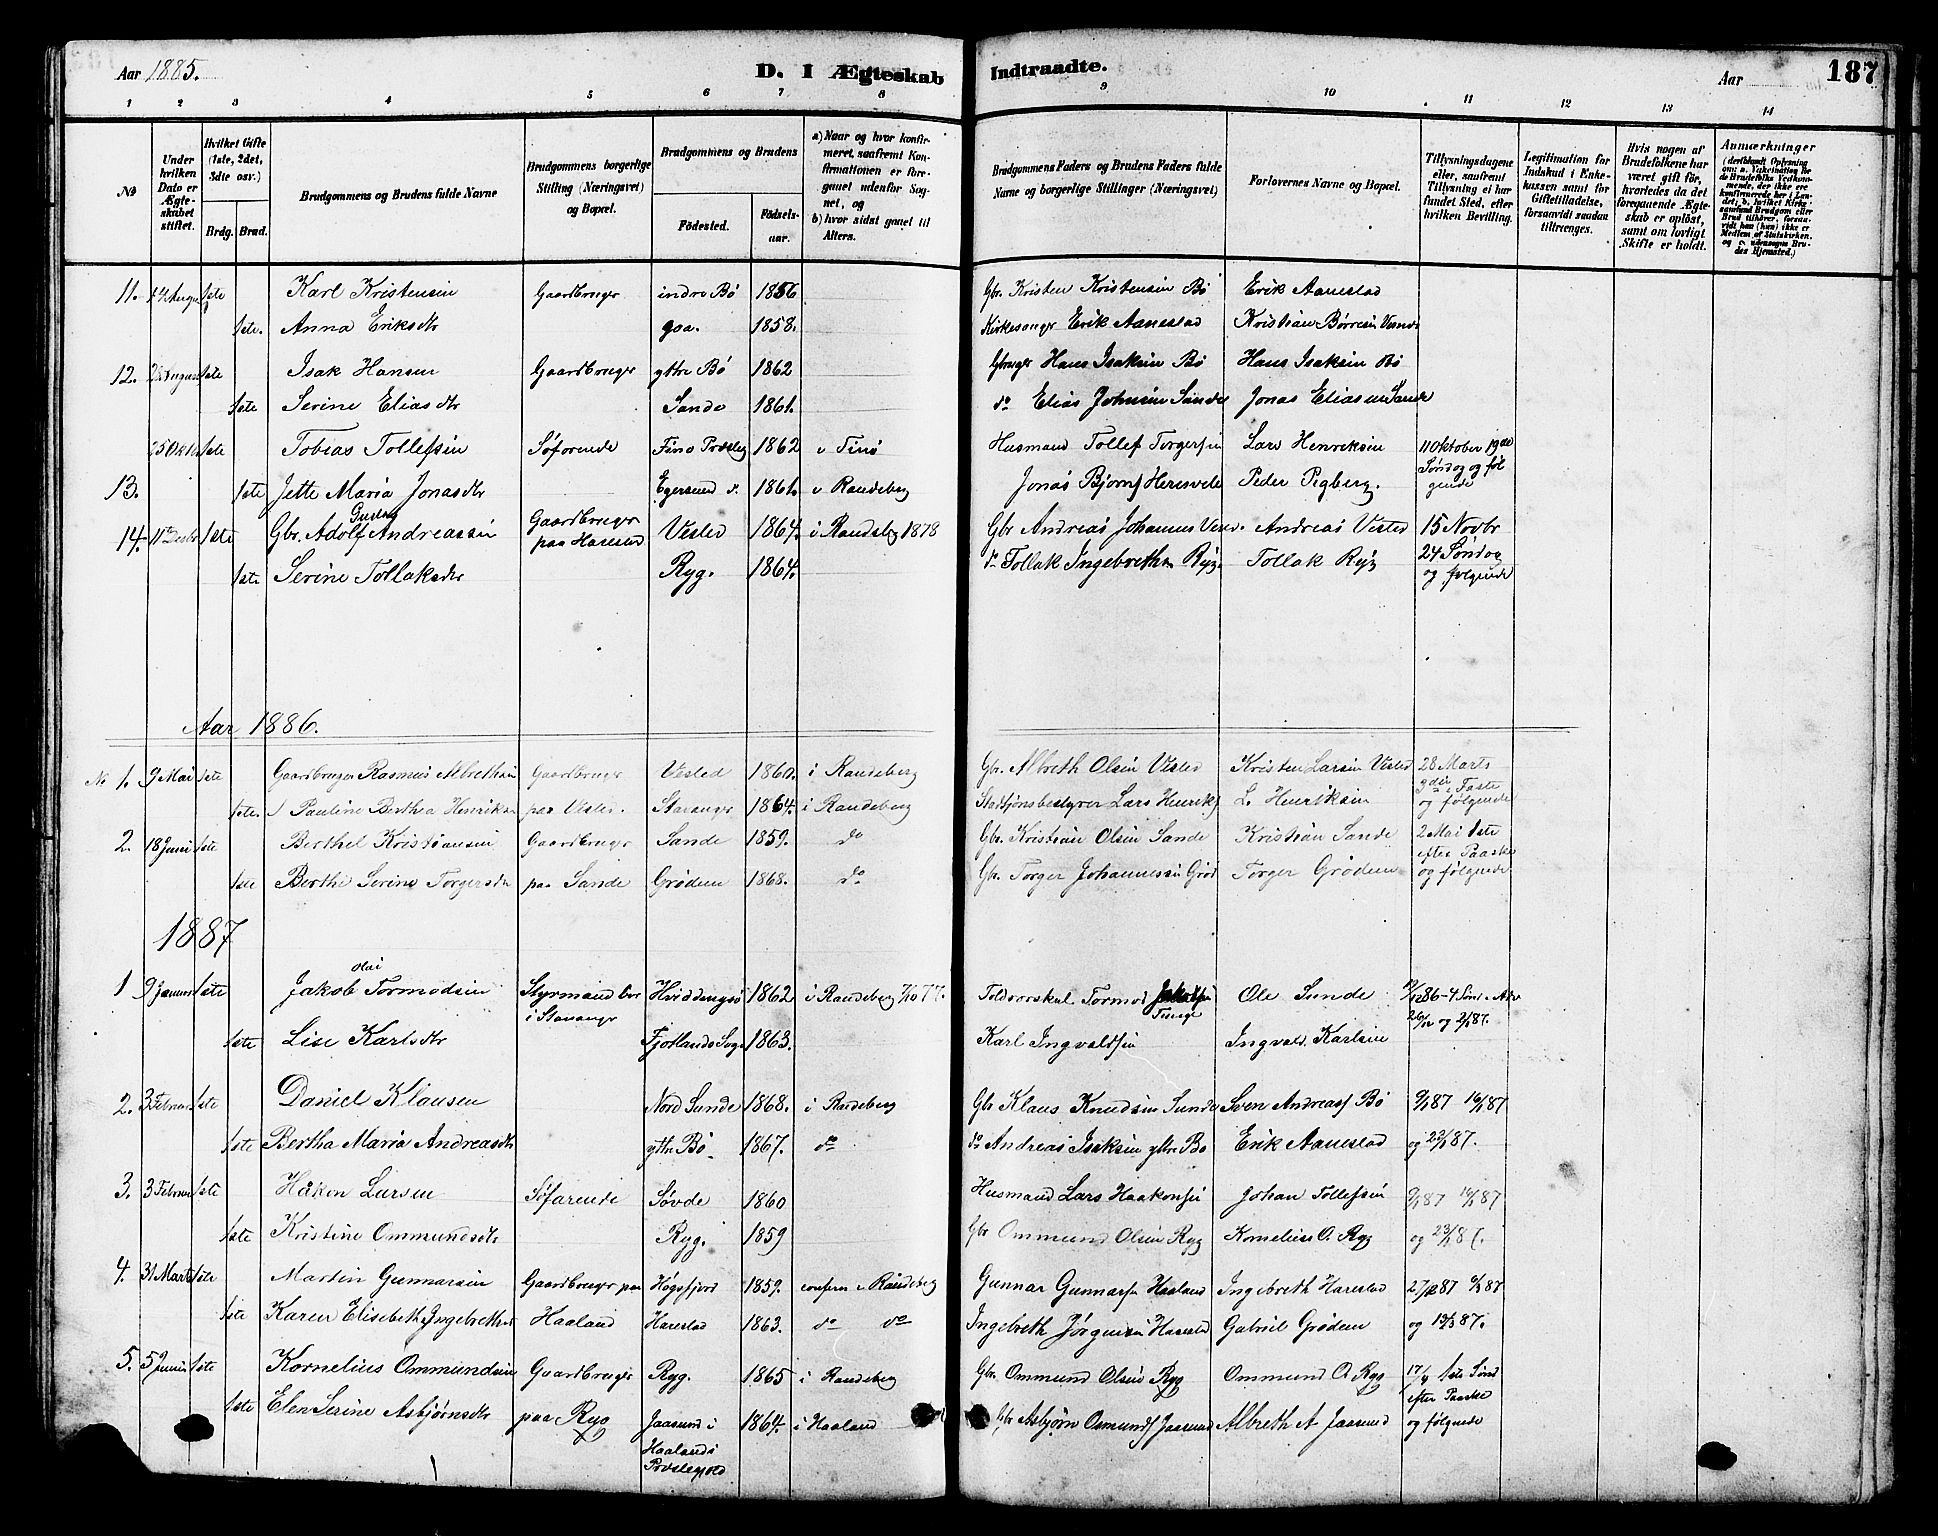 Aar 1885. D. I Ægteskab Indtraadte. Aar 187
1 2 3 4 5 6 7 8 9 10 11 12 13 14
No
Under hvilken Dato er Ægteskabet stiftet.
Hvilket Gifte (1ste, 2det, 3die osv.)
Brdg. Brud.
Brudgommens og Brudens fulde Navne
Brudgommens borgerlige Stilling (Næringsvei) og Bopæl.
Brudgommens og Brudens
Fødested. Fødselsaar.
a) Naar og hvor konfirmeret, saafremt Konfirmationen er foregaaet udenfor Sognet, og b) hvor sidst gaaet til Alters.
Brudgommens Faders og Brudens Faders fulde Navne og borgerlige Stillinger (Næringsvei)
Forlovernes Navne og Bopæl.
Tillysningsdagene eller, saafremt Tillysning ei har fundet Sted, efter hvilken Bevilling.
Legitimation for Indskud i Enkekassen samt for Giftetilladelse, forsaavidt saadan tiltrænges.
Hvis nogen af Brudefolkene har været gift før, hvorledes da det foregaaende Ægteskab er opløst, samt om lovligt Skifte er holdt.
Anmærkninger
11. 1ste Karl Kristensen Gaardbruger indre Bø 1856 Gbr. Kristen Kristensen Bø Erik Aanestad
1ste. Anna Eriksdtr goa. 1858. Kirkesanger Erik Aanestad Kristian Børresen
12. 1ste Isak Hansen Gaardbruger ytre Bø 1862 Gbruger Hans Isaksen Bø Hans Isaksen Bø
1ste Serine Eliasdtr Sande 1861. do Elias Johnsen Sande Jonas Eliasen Sande
13. 25 Oktbr 1ste Tobias Tollefsen Søfarende 1862 Husmand Tollef Torgersen Lars Henriksen 11 Oktober 19de Søndag og følgende
1ste Jette Maria Jonasdtr Egersund 1861. Randeberg Jonas Bjørns Peder
14. 11te Decbr 1ste Gbr. Adolf Andreassen Gaardbruger paa Harestad Vested 1864. i Randebg 1878 Gbr Andreas Johannes Andreas Vested 15 Novbr
1ste Serine Tollaksdtr Ryg. 1864. do Tollak Ingebrethsen Ryg. Tollak Ryg 24 Søndag og følgende
Aar 1886.
No 1. 9 Mai 1ste Gaardbruger Rasmus Albrethsen Gaardbruger Vested 1860. i Randeberg Gbr. Albreth Olsen Vested Kristen Larsen Vested 28 Marts 3die i Faste og følgende
1ste. Pauline Berthea Henriksen paa Vested. Stavanger 1864. i Randeberg Lars Henriks L. Henriksen
2. 18 Juni 1ste Berthel Kristiansen Gaardbruger Sande 1859. do Gbr. Kristian Olsen Sande Kristian Sande 2 Mai 1ste efter Paaske og følgende
1ste Berthe Serine Torgersdtr paa Sande Grødem 1868. do Gbr. Torger Johannessen Grød Torger Grødem
1887
1 9 Januar 1ste Jakob Olai Tormodsen Styrmand i Stavanger Hviddingsø 1862 i Randeberg Tormod Jakobsen Tunge Ole Sunde 26/12 og 2/1 87.
1ste Lise Karlsdtr Fjotlands Sogn 1863. Karl Ingvaldsen Ingvald Karlsen
2. 3 Februar 1ste Daniel Klausen Nord Sunde 1868. i Randeberg Gbr Klaus Knudsen Sunde Sven Andreass Bø 9/1 87 16/1 87
1ste Bertha Maria Andreasdtr ytre Bø 1867. do do Andreas Isaksen ytre Bø Erik Aanestad og 23/1 87.
3. 3 Februar 1ste Håkon Larsen Søfarende Søvde 1860 Husmand Lars Haakonsen Johan Tollefsen 9/1 87 16/1 87
1ste Kristine Ommundsdtr Ryg. 1859 Gbr Ommund Olsen Ryg Kornelius O. Ryg og 23/1 87.
4. 31 Marts 1ste Martin Gunnarsen Gaardbruger paa Høgsfjord 1859. conferm i Randeberg Gunnar Gunnarsen Haaland Ingebreth Harestad 27/2 87 6/3 87
1ste Karen Elisabeth Ingebrethsd Haaland Harestad 1863. do do Ingebreth Jørgensen Harestd Gabriel Grødem og 13/3 87.
5. 5 Junii 1ste Kornelius Ommundsen Gaardbruger Ryg. 1865 i Randeberg Gbr. Ommund Olsen Ryg Ommund O. Ryg 17/4 1ste Sønd efter Paaske og følgende
1ste Elen Serine Asbjørnsdtr paa Ryg Jaasund i Haalands Præstegjeld 1864. i Haaland Gbr Asbjørn Osmunds Jaasund Albreth A Jaasund